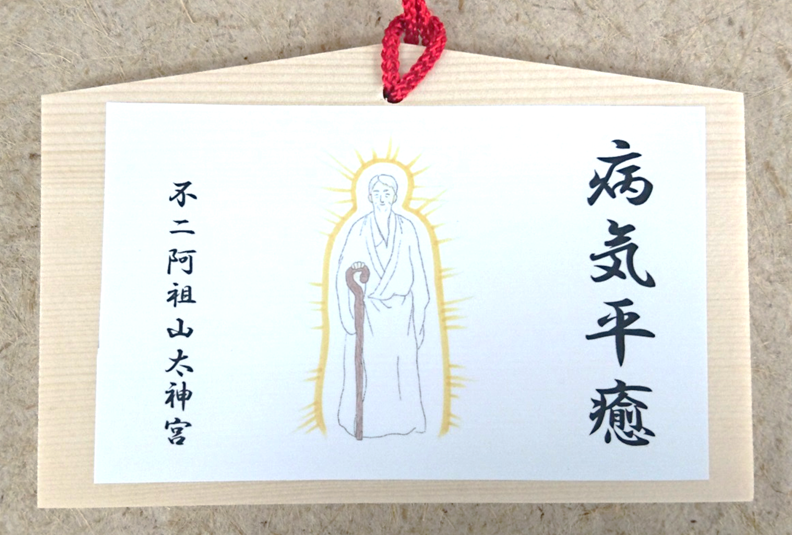 病気平癒
不二阿祖山太神宮